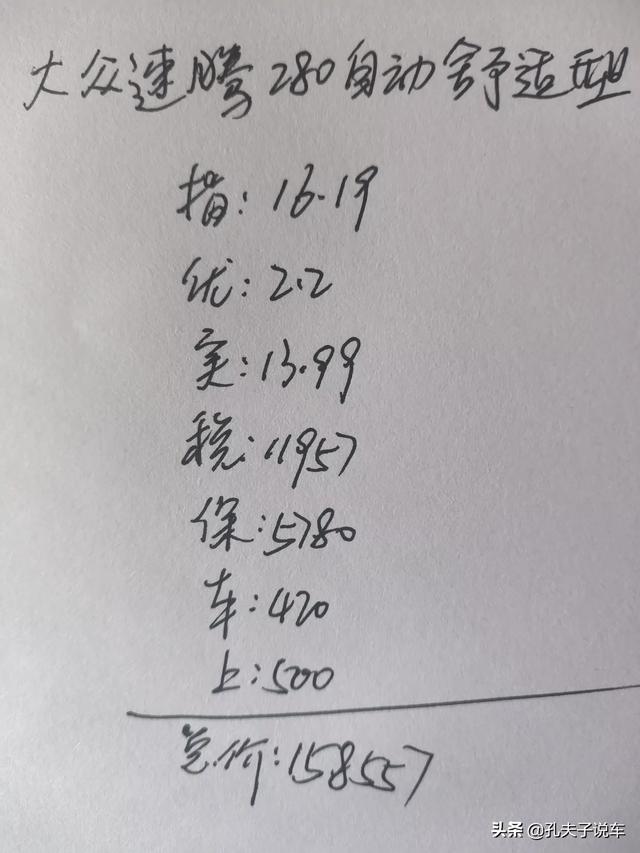 大众速腾280自动舒适型
指:16.19
优:2.2
实:13.99
税:11957
保:5780
车:420
上:500
总价:158557
头条 @孔夫子说车